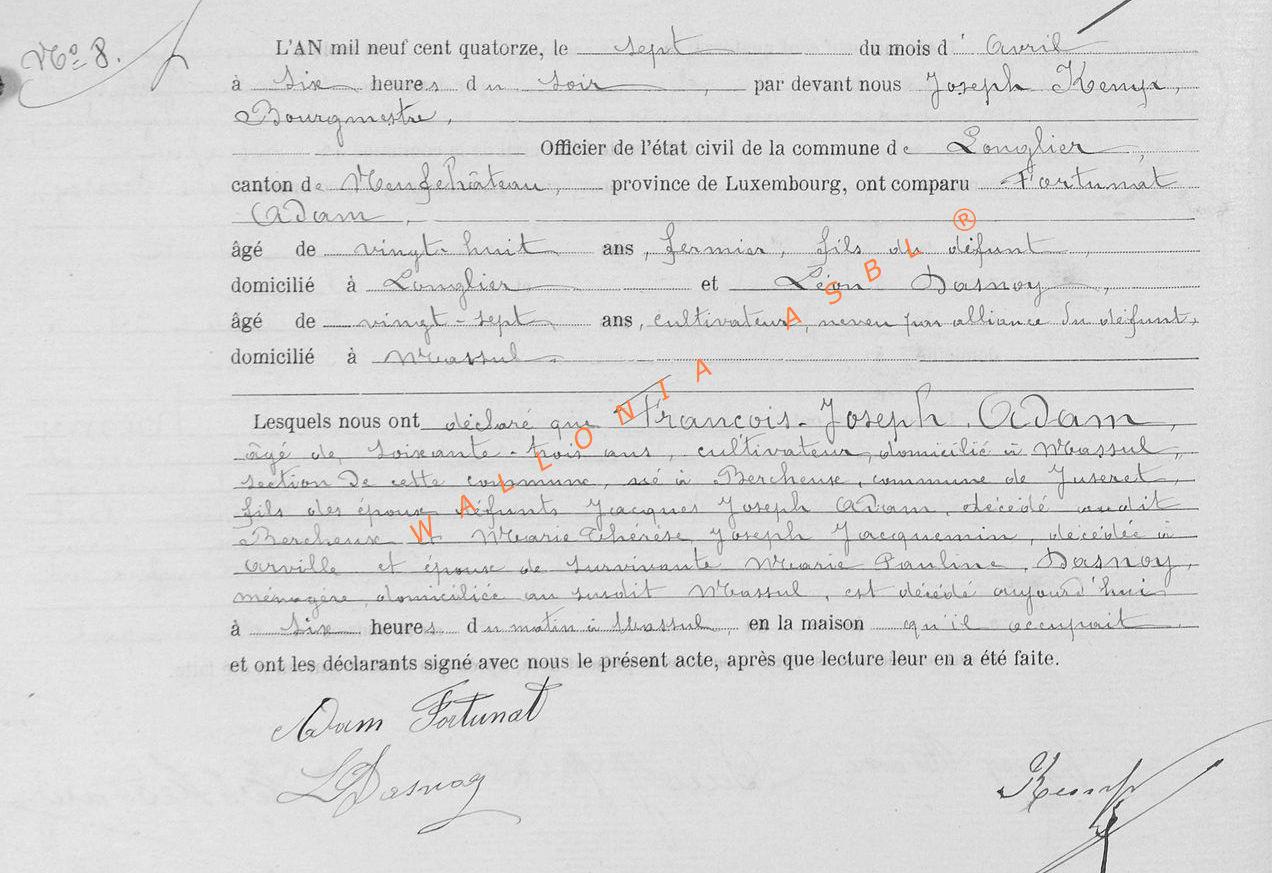 No 8.
L'AN mil neuf cent quatorze, le sept du mois d'Avril
à six heures du soir, par devant nous Joseph Kemp,
Bourgmestre,
Officier de l'état civil de la commune de Longlier,
canton de Neufchâteau, province de Luxembourg, ont comparu Fortunat
Adam,
âgé de vingt-huit ans, fermier, fils du défunt
domicilié à Longlier et Léon Dasnoy,
âgé de vingt-sept ans, cultivateur, neveu par alliance du défunt,
domicilié à Massul.
Lesquels nous ont déclaré que François-Joseph Adam,
âgé de soixante-trois ans, cultivateur, domicilié à Massul,
section de cette commune, né à Bercheux, commune de Juseret,
fils des époux défunts Jacques Joseph Adam, décédé audit
Bercheux et Marie Thérèse Joseph Jacquemin, décédée à
Orville et époux de survivante Marie Pauline Dasnoy,
ménagère, domiciliée au susdit Massul, est décédé aujourd'hui
à six heures du matin à Massul, en la maison qu'il occupait
et ont les déclarants signé avec nous le présent acte, après que lecture leur en a été faite.
Adam Fortunat
L Dasnoy
Kemp
WALLONIA ASBL ®